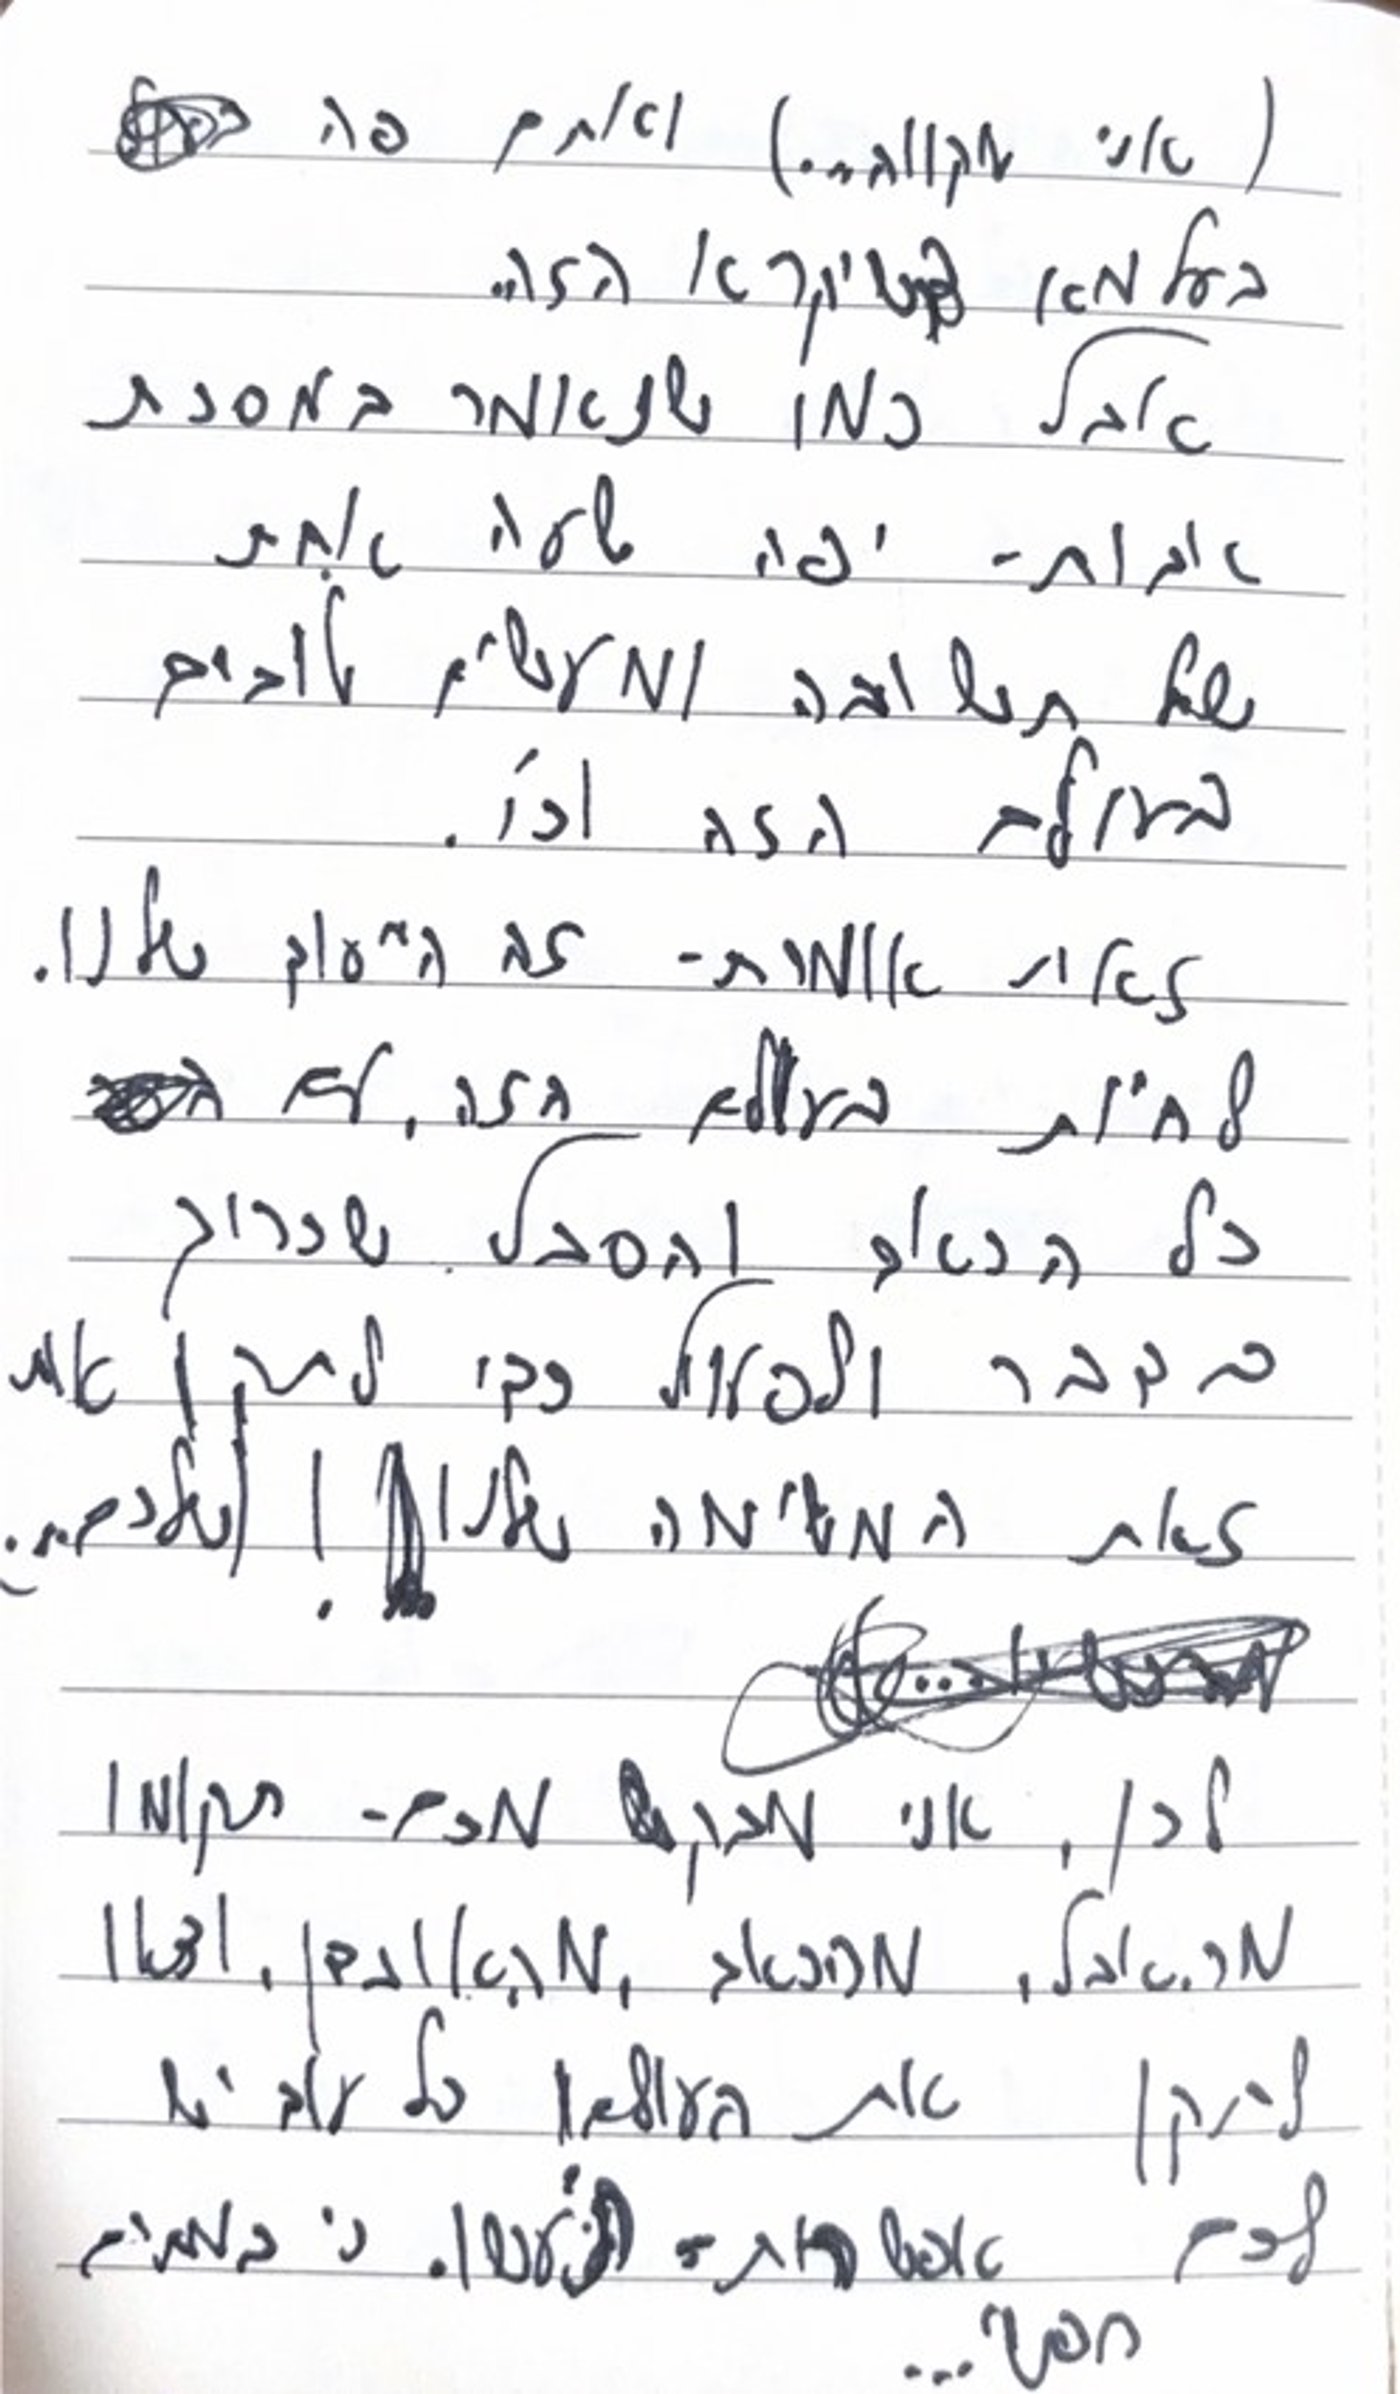 (אני מקווה...) ואתם פה
בעלמא דשיקרא הזה.
אבל כמו שנאמר במסכת
אבות- יפה שעה אחת
של תשובה ומעשים טובים
בעולם הזה וכו'.
זאת אומרת- זה הייעוד שלנו.
לחיות בעולם הזה, עם
כל הכאב והסבל שכרוך
בדבר ולפעול כדי לתקן את
זאת המשימה שלנו! (שלכם...)
לכן, אני מבקש מכם- תקומו
מהאבל, מהכאב, מהאובדן, וצאו
לתקן את העולם! כל עוד יש
לכם אפשרות- תעשו. כי במתים
חפשי...